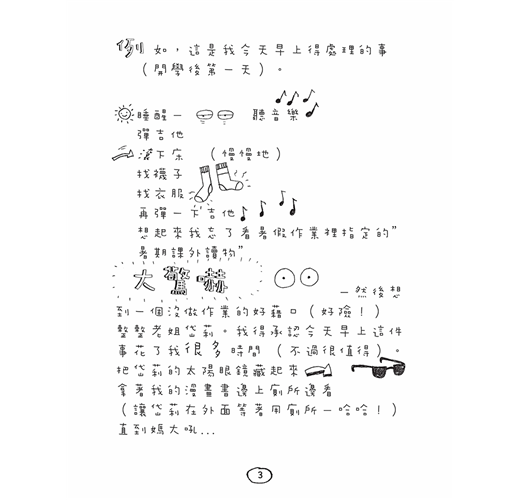 例如，這是我今天早上得處理的事
（開學後第一天）。
睡醒－ 聽音樂
彈吉他
下床 （慢慢地）
找襪子
找衣服
再彈一下吉他
想起來我忘了看暑假作業裡指定的”
暑期課外讀物”
大驚嚇 －然後想
到一個沒做作業的好藉口（好險！）
整整老姐岱莉。我得承認今天早上這件
事花了我很多時間（不過很值得）。
把岱莉的太陽眼鏡藏起來
拿著我的漫畫書邊上廁所邊看
（讓岱莉在外面等著用廁所－哈哈！）
直到媽大吼...
3